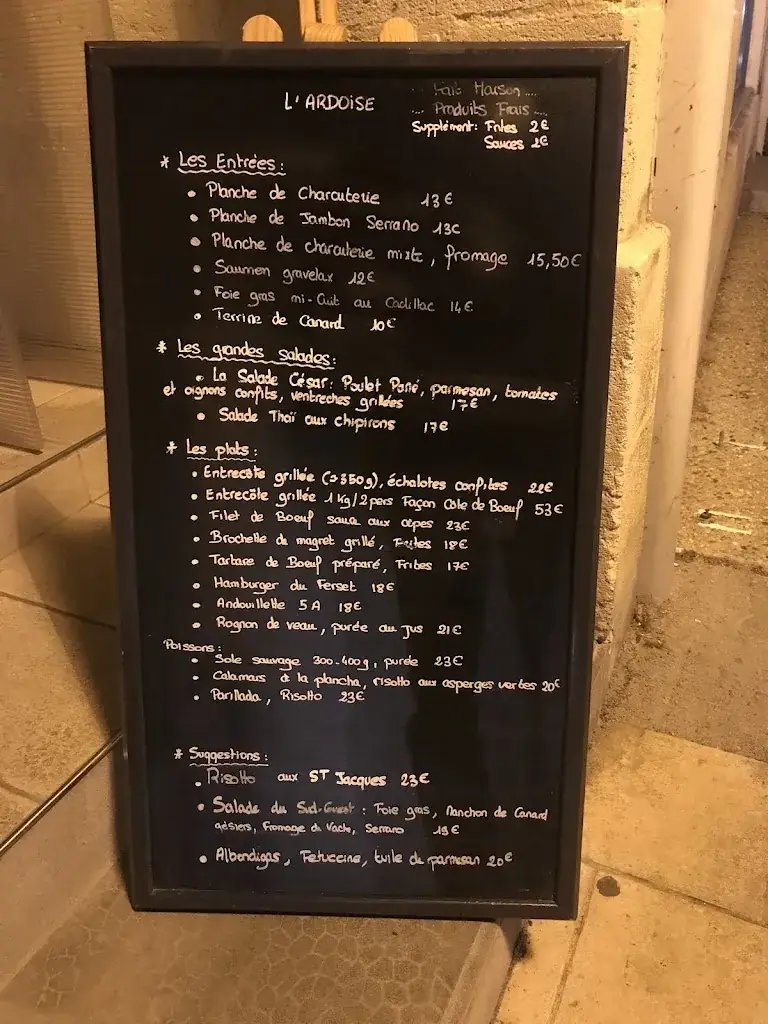 L'ARDOISE
... Fait Maison ...
... Produits Frais ...
Supplément: Frites 2€
Sauces 2€
* Les Entrées:
• Planche de Charcuterie 13€
• Planche de Jambon Serrano 13€
• Planche de charcuterie mixte, fromage 15,50€
• Saumon gravelax 12€
• Foie gras mi-Cuit au Cadillac 14€
• Terrine de Canard 10€
* Les grandes Salades:
• La Salade César: Poulet Pané, parmesan, tomates
et oignons confits, ventreches grillées 17€
• Salade Thaï aux chipirons 17€
* Les plats:
• Entrecôte grillée (≃350g), échalotes confites 22€
• Entrecôte grillée 1 kg/2pers Façon Côte de Boeuf 53€
• Filet de Boeuf sauce aux cèpes 23€
• Brochette de magret grillé, Frites 18€
• Tartare de Boeuf préparé, Frites 17€
• Hamburger du Ferset 18€
• Andouillette 5A 18€
• Rognon de veau, purée au Jus 21€
Poissons:
• Sole sauvage 300-400g, purée 23€
• Calamars à la plancha, risotto aux asperges vertes 20€
• Parillada, Risotto 23€
* Suggestions:
• Risotto aux ST Jacques 23€
• Salade du Sud-Ouest: Foie gras, Manchon de Canard
gésiers, Fromage de Vache, Serrano 19€
• Albondigas, Fetuccine, tuile de parmesan 20€